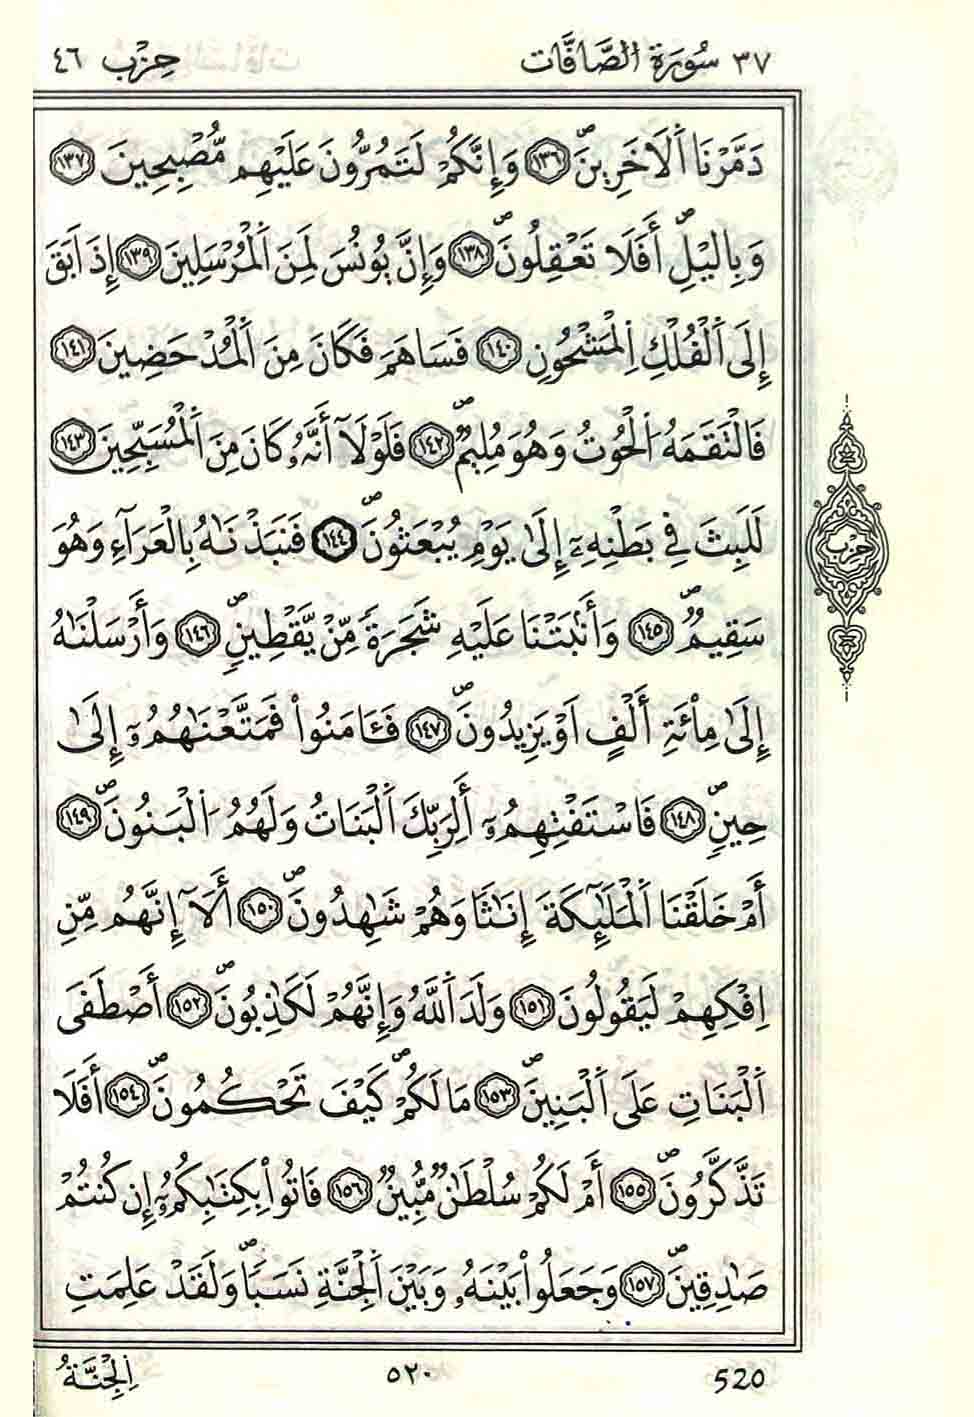 ٣٧ سُورَةُ الصَّافَّات حِزْب ٤٦
دَمَّرْنَا اَ۬لَاخَرِينَۖ ١٣٦ وَإِنَّكُمْ لَتَمُرُّونَ عَلَيْهِم مُّصْبِحِينَ ١٣٧
وَبِاليْلِۖ أَفَلَا تَعْقِلُونَۖ ١٣٨ وَإِنَّ يُونُسَ لَمِنَ اَ۬لْمُرْسَلِينَ ١٣٩ إِذَ اَبَقَ
إِلَى اَ۬لْفُلْكِ اِ۬لْمَشْحُونِ ١٤٠ فَسَاهَمَ فَكَانَ مِنَ اَ۬لْمُدْحَضِينَ ١٤١
فَالْتَقَمَهُ اُ۬لْحُوتُ وَهُوَ مُلِيمٞۖ ١٤٢ فَلَوْلَآ أَنَّهُۥ كَانَ مِنَ اَ۬لْمُسَبِّحِينَ ١٤٣
لَلَبِثَ فِي بَطْنِهِۦٓ إِلَىٰ يَوْمِ يُبْعَثُونَۖ ١٤٤ فَنَبَذْنَٰهُ بِالْعَرَآءِ وَهُوَ
سَقِيمٞۖ ١٤٥ وَأَنۢبَتْنَا عَلَيْهِ شَجَرَةٗ مِّنْ يَّقْطِينٖۖ ١٤٦ وَأَرْسَلْنَٰهُ
إِلَىٰ مِاْئَةِ أَلْفٍ اَوْ يَزِيدُونَۖ ١٤٧ فَـَٔامَنُواْ فَمَتَّعْنَٰهُمُۥٓ إِلَىٰ
حِينٖۖ ١٤٨ فَاسْتَفْتِهِمُۥٓ أَلِرَبِّكَ اَ۬لْبَنَاتُ وَلَهُمُ اُ۬لْبَنُونَۖ ١٤٩
أَمْ خَلَقْنَا اَ۬لْمَلَٰٓئِكَةَ إِنَٰثٗا وَهُمْ شَٰهِدُونَۖ ١٥٠ أَلَآ إِنَّهُم مِّنِ
اِفْكِهِمْ لَيَقُولُونَ ١٥١ وَلَدَ اَ۬للَّهُ وَإِنَّهُمْ لَكَٰذِبُونَۖ ١٥٢ أَصْطَفَى
اَ۬لْبَنَاتِ عَلَى اَ۬لْبَنِينَۖ ١٥٣ مَا لَكُمْۖ كَيْفَ تَحْكُمُونَۖ ١٥٤ أَفَلَا
تَذَّكَّرُونَۖ ١٥٥ أَمْ لَكُمْ سُلْطَٰنٞ مُّبِينٞ ١٥٦ فَاتُواْ بِكِتَٰبِكُمُۥٓ إِن كُنتُمْ
صَٰدِقِينَۖ ١٥٧ وَجَعَلُواْ بَيْنَهُۥ وَبَيْنَ اَ۬لْجِنَّةِ نَسَباٗۖ وَلَقَدْ عَلِمَتِ
حِزْب
اِ۬لْجِنَّةُ ٥٢٠ 520